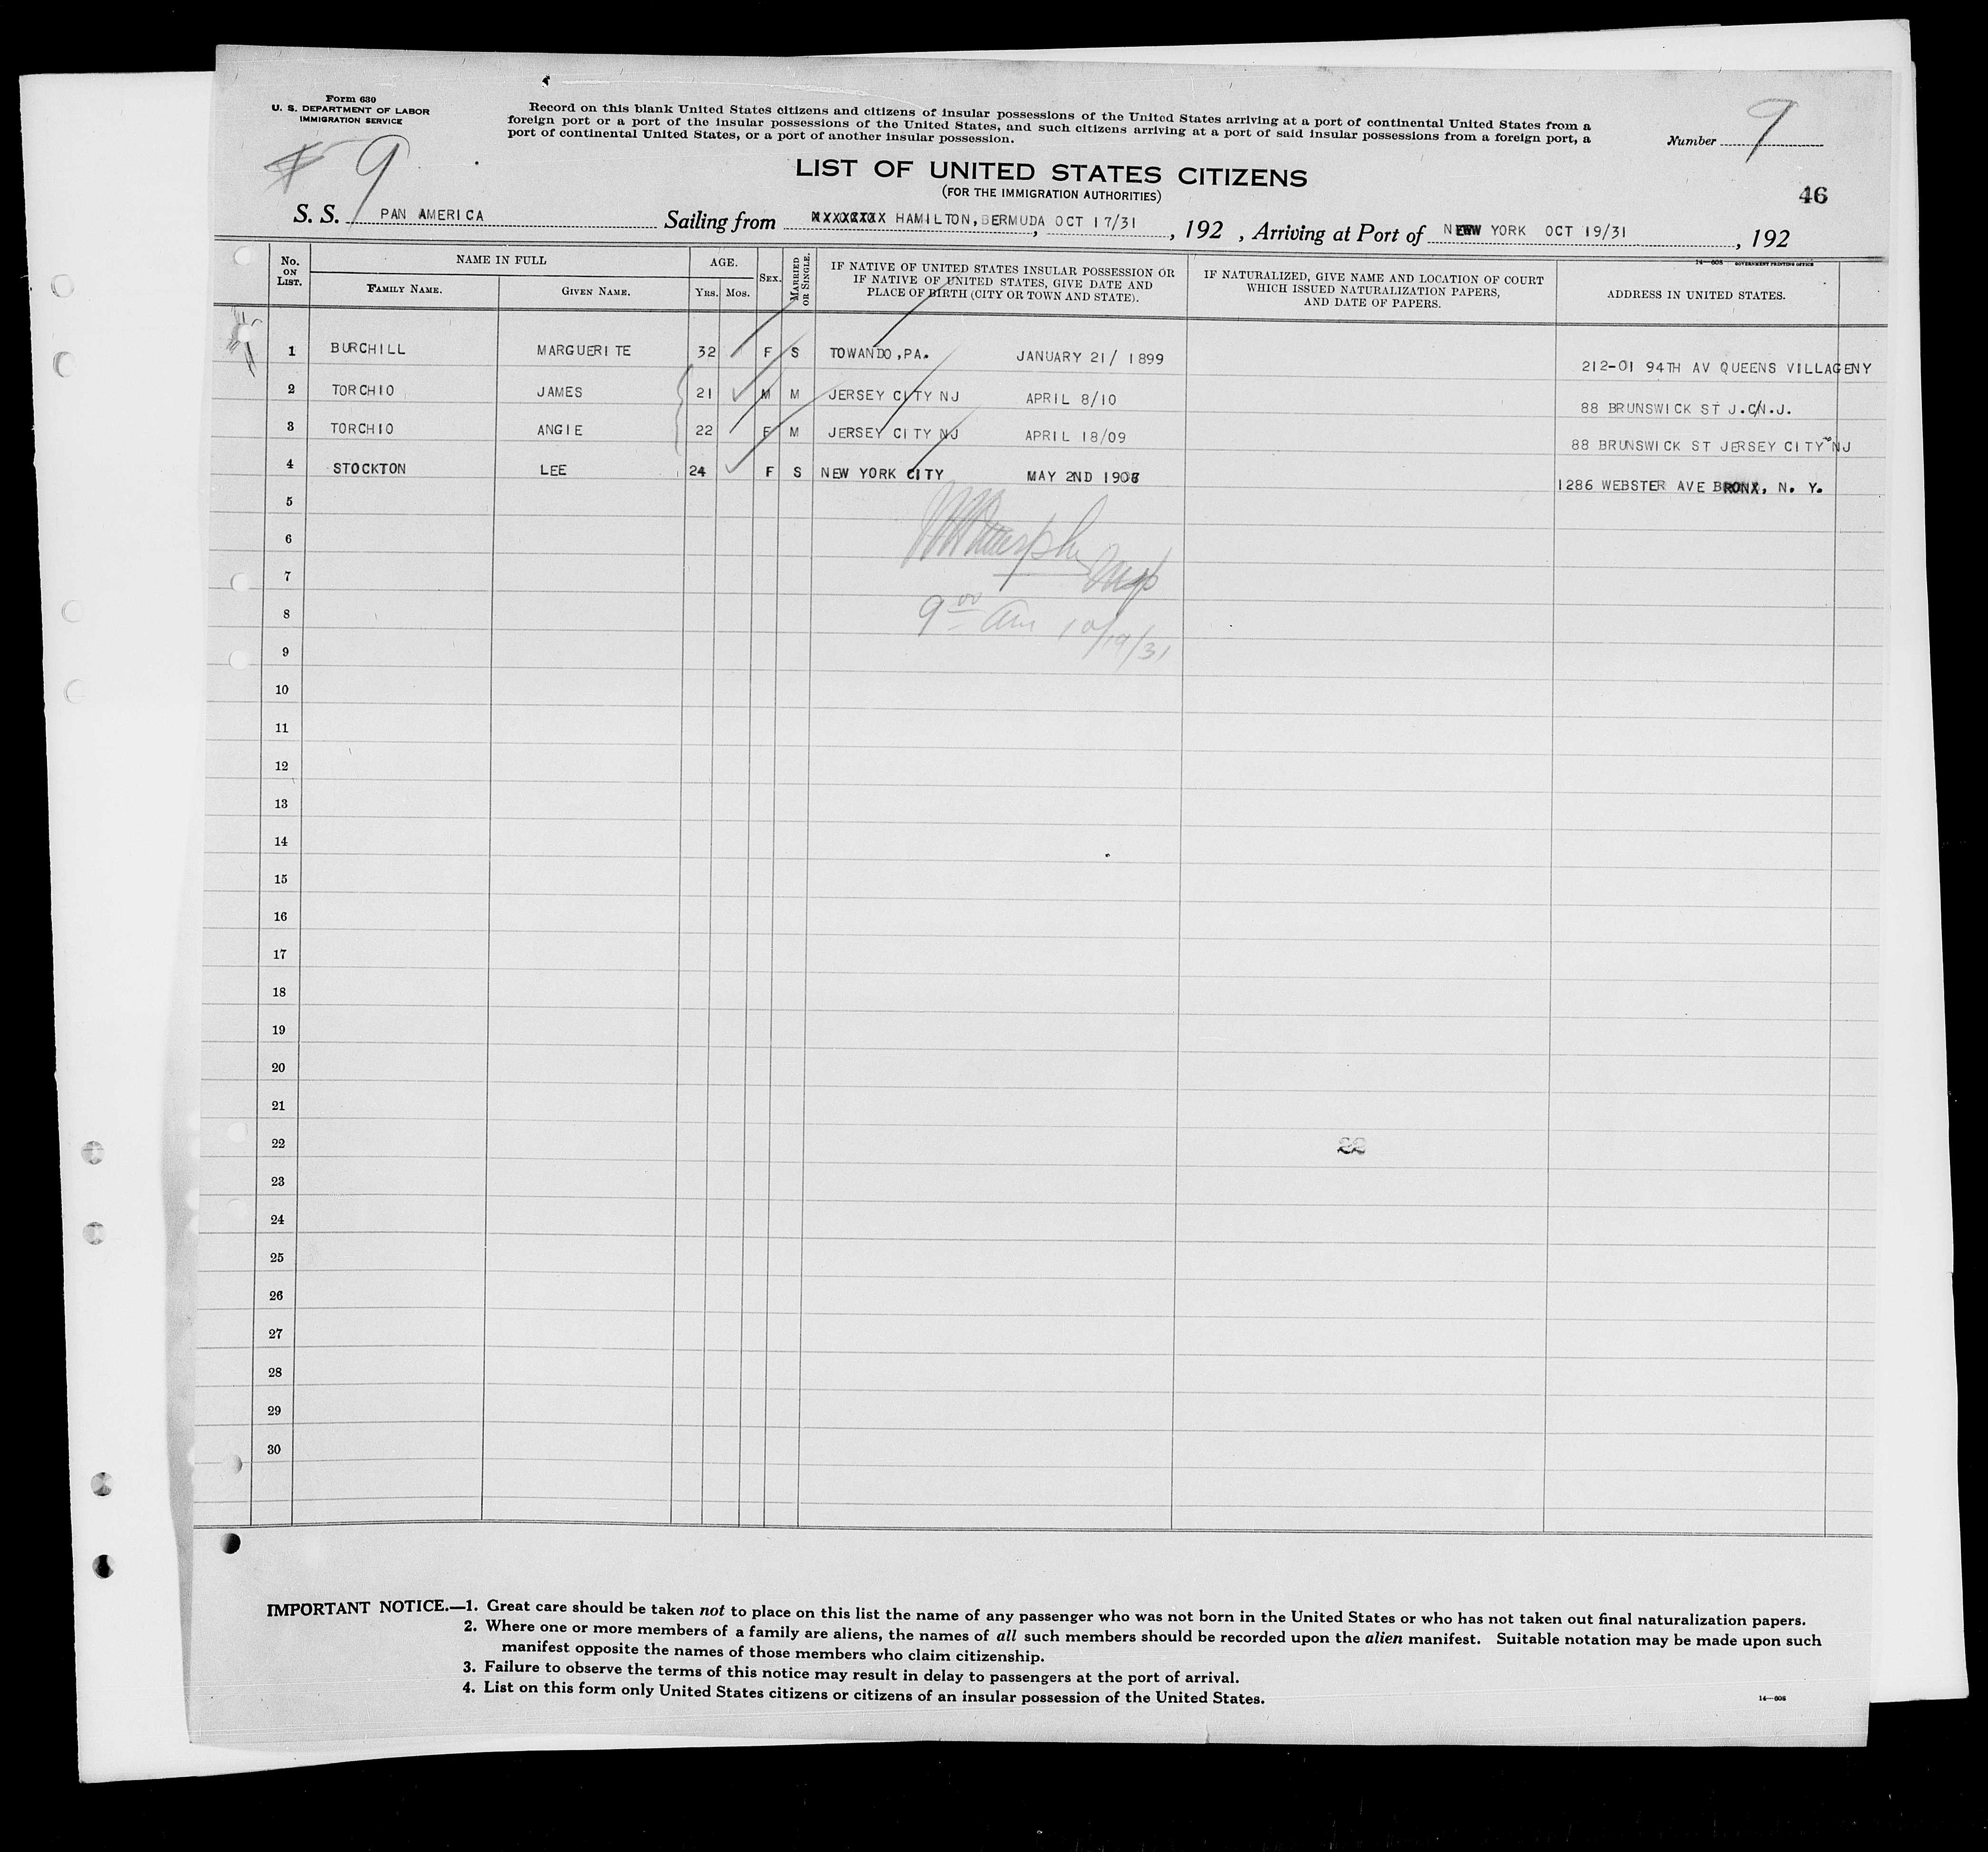 Form 630
U. S. DEPARTMENT OF LABOR
IMMIGRATION SERVICE
Record on this blank United States citizens and citizens of insular possessions of the United States arriving at a port of continental United States from a
foreign port or a port of the insular possessions of the United States, and such citizens arriving at a port of said insular possessions from a foreign port, a
port of continental United States, or a port of another insular possession.
Number 9
9
LIST OF UNITED STATES CITIZENS
(FOR THE IMMIGRATION AUTHORITIES)
46
S. S. PAN AMERICA Sailing from HAMILTON, BERMUDA OCT 17/31, 192 , Arriving at Port of NEW YORK OCT 19/31, 192
14—608 GOVERNMENT PRINTING OFFICE
No. ON LIST. NAME IN FULL AGE. SEX. MARRIED OR SINGLE. IF NATIVE OF UNITED STATES INSULAR POSSESSION OR IF NATIVE OF UNITED STATES, GIVE DATE AND PLACE OF BIRTH (CITY OR TOWN AND STATE). IF NATURALIZED, GIVE NAME AND LOCATION OF COURT WHICH ISSUED NATURALIZATION PAPERS, AND DATE OF PAPERS. ADDRESS IN UNITED STATES.
FAMILY NAME. GIVEN NAME. YRS. MOS.
1 BURCHILL MARGUERITE 32 F S TOWANDO, PA. JANUARY 21/ 1899 212-01 94TH AV QUEENS VILLAGENY
2 TORCHIO JAMES 21 M M JERSEY CITY NJ APRIL 8/10 88 BRUNSWICK ST J.C/N.J.
3 TORCHIO ANGIE 22 F M JERSEY CITY NJ APRIL 18/09 88 BRUNSWICK ST JERSEY CITY NJ
4 STOCKTON LEE 24 F S NEW YORK CITY MAY 2ND 1907 1286 WEBSTER AVE BRONX, N. Y.
5
6
7
8 9 00 am 10/19/31
9
10
11
12
13
14
15
16
17
18
19
20
21
22 22
23
24
25
26
27
28
29
30
IMPORTANT NOTICE.—1. Great care should be taken not to place on this list the name of any passenger who was not born in the United States or who has not taken out final naturalization papers.
2. Where one or more members of a family are aliens, the names of all such members should be recorded upon the alien manifest. Suitable notation may be made upon such
manifest opposite the names of those members who claim citizenship.
3. Failure to observe the terms of this notice may result in delay to passengers at the port of arrival.
4. List on this form only United States citizens or citizens of an insular possession of the United States.
14—608